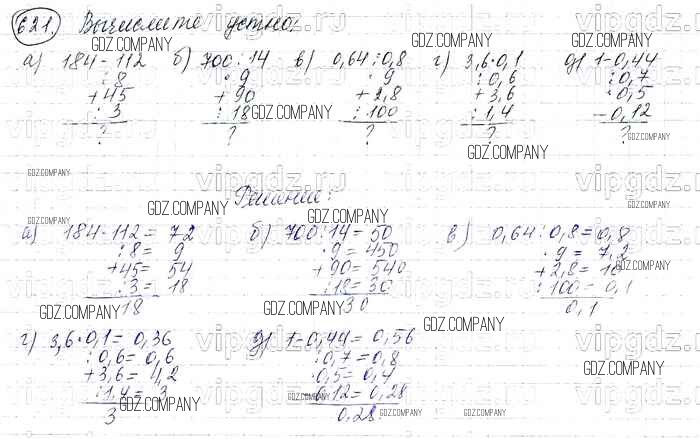 621. Вычислите устно:
а) 184 - 112 б) 700 : 14 в) 0,64 : 0,8 г) 3,6 · 0,1 д) 1 - 0,44
: 8 · 9 · 9 : 0,6 : 0,7
+ 45 + 90 + 2,8 + 3,6 · 0,5
: 3 : 18 : 100 : 1,4 - 0,12
? ? ? ? ?
Решение:
а) 184 - 112 = 72 б) 700 : 14 = 50 в) 0,64 : 0,8 = 0,8
: 8 = 9 · 9 = 450 · 9 = 7,2
+ 45 = 54 + 90 = 540 + 2,8 = 10
: 3 = 18 : 18 = 30 : 100 = 0,1
18 30 0,1
г) 3,6 · 0,1 = 0,36 д) 1 - 0,44 = 0,56
: 0,6 = 0,6 : 0,7 = 0,8
+ 3,6 = 4,2 · 0,5 = 0,4
: 1,4 = 3 - 0,12 = 0,28
3 0,28
GDZ.COMPANY
vipgdz.ru